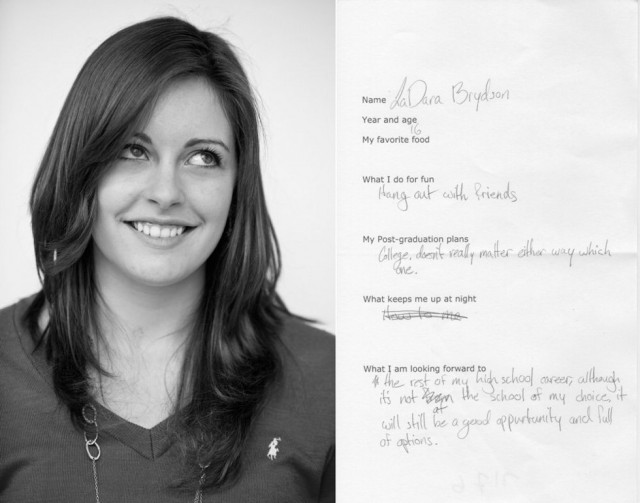 Name LaDara Brydson
Year and age
16
My favorite food
What I do for fun
Hang out with friends
My Post-graduation plans
College, doesn't really matter either way which
one.
What keeps me up at night
What I am looking forward to
the rest of my high school career, although
it's not the school of my choice, it
will still be a good oppurtunity and full
of options.